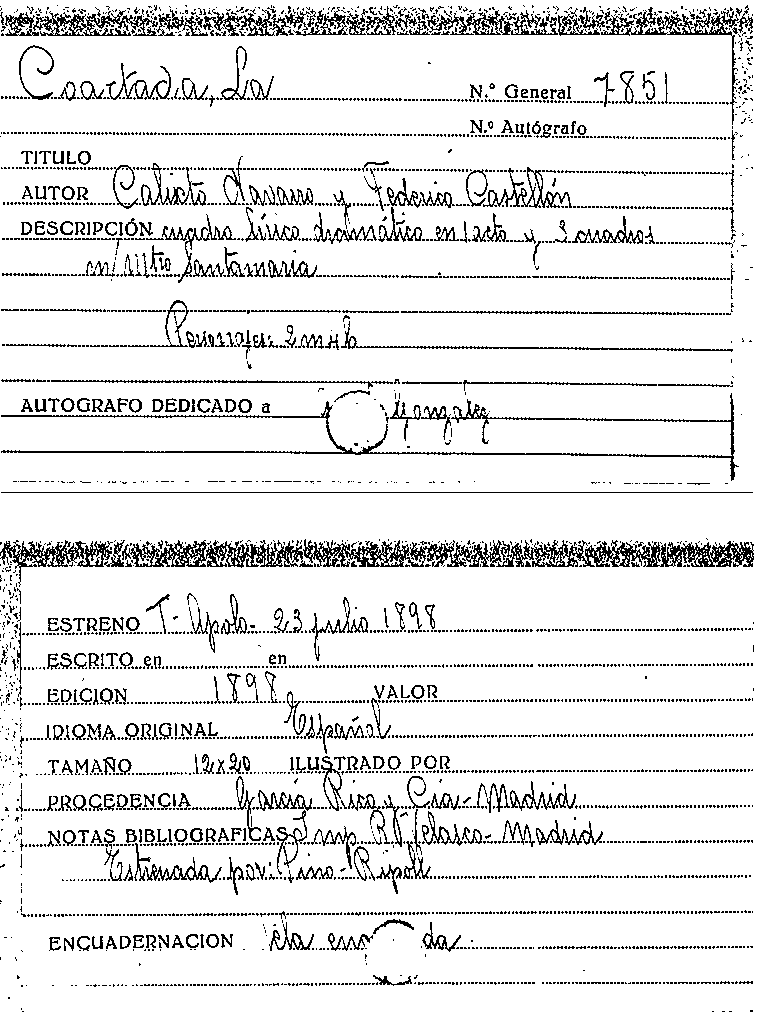 Coartada, La
N.º General 7851
N.º Autógrafo
TITULO
AUTOR Calixto Navarro y Federico Castellón
DESCRIPCIÓN cuadro lírico dramático en 1 acto y 3 cuadros
m/ Mtro Santamaria
Personajes: 2 m 4 h
AUTOGRAFO DEDICADO a Gonzalez
ESTRENO T- Apolo- 23 julio 1898
ESCRITO en en
EDICION 1898 VALOR
IDIOMA ORIGINAL Español
TAMAÑO 12x20 ILUSTRADO POR
PROCEDENCIA García Rico y Cia- Madrid
NOTAS BIBLIOGRAFICAS Imp. R. Velasco- Madrid
Estrenada por: Pino- Ripoll
ENCUADERNACION tela